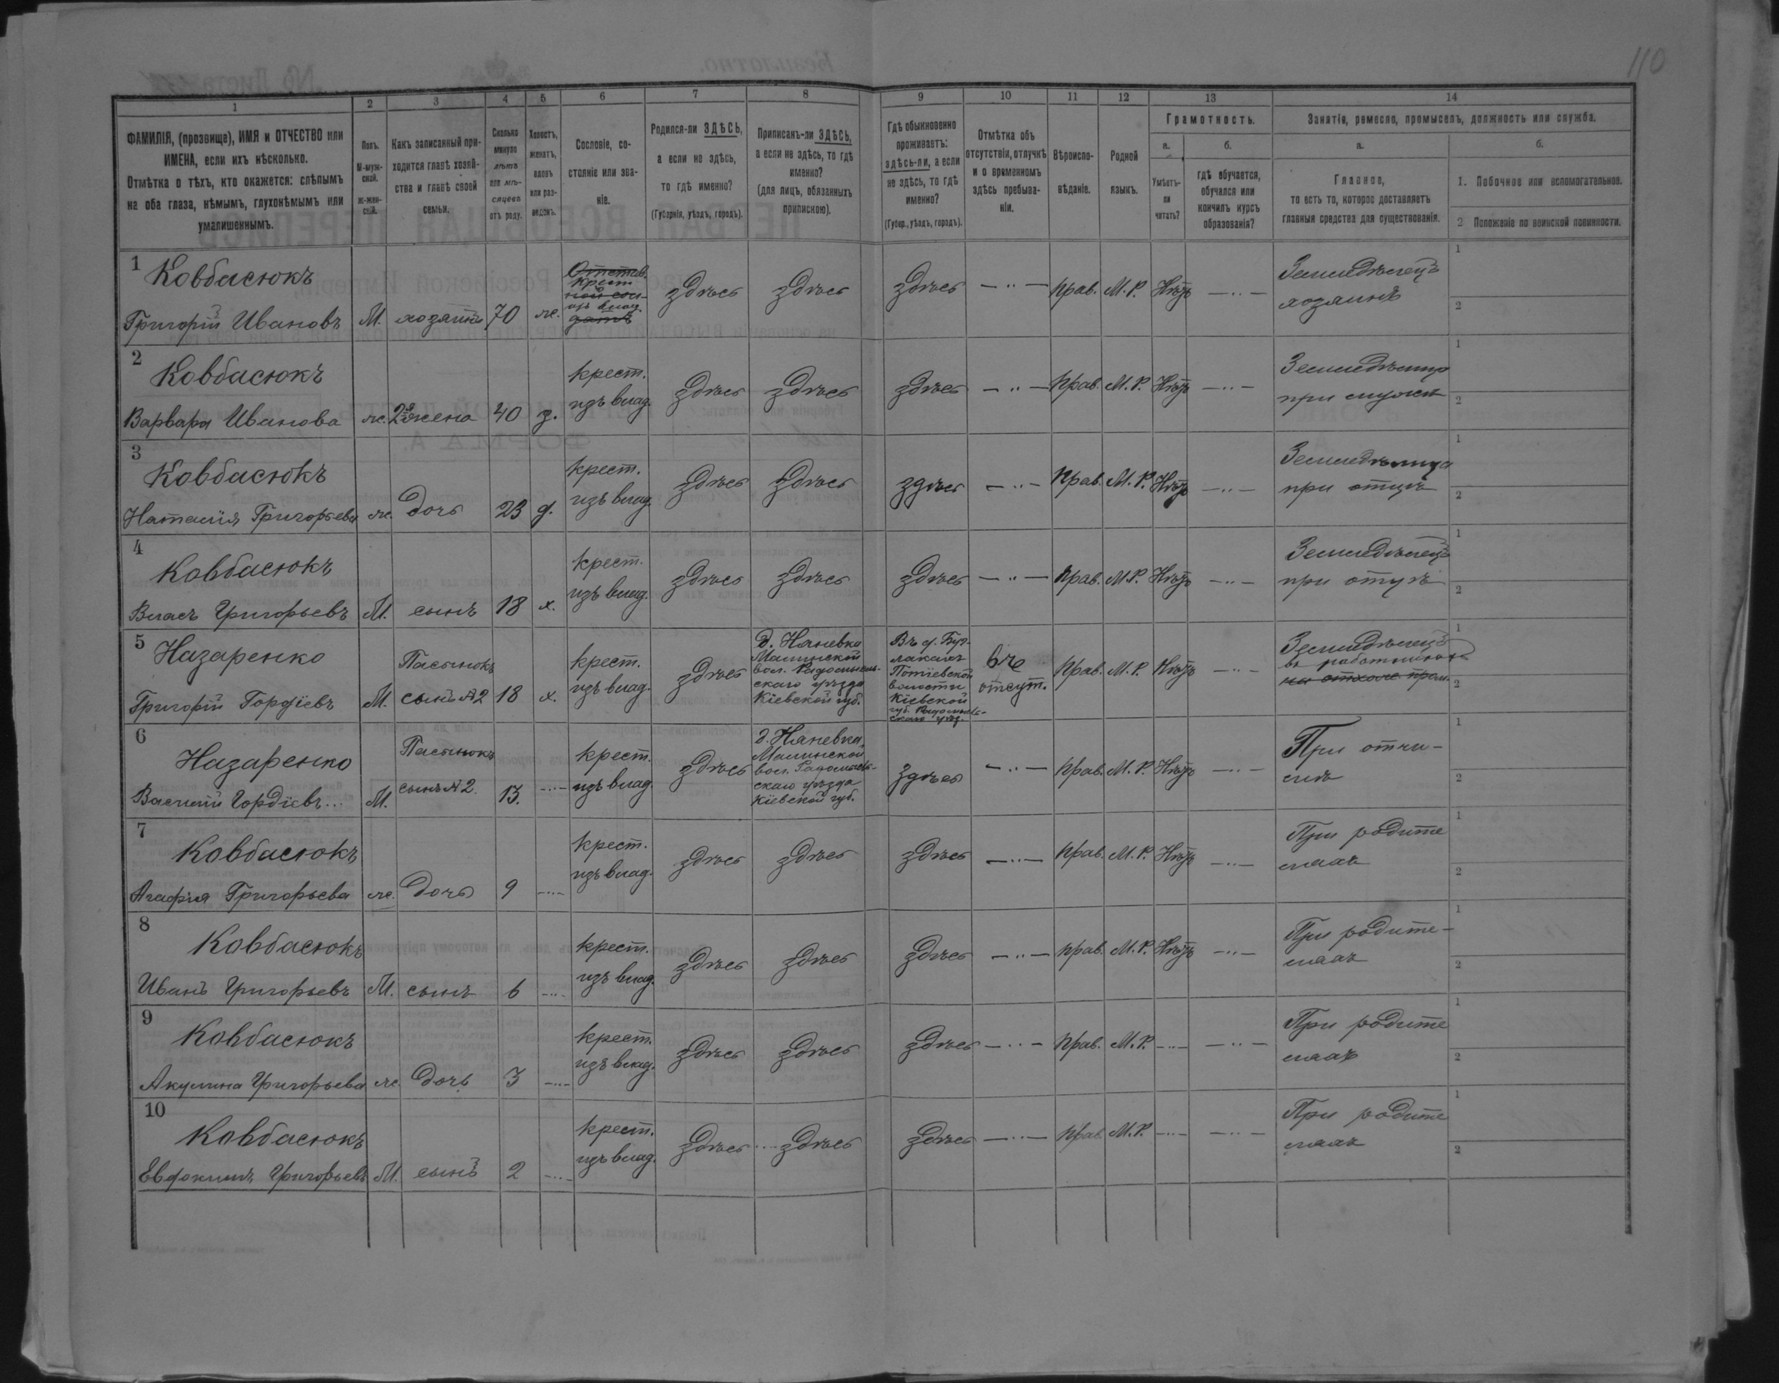 110
1 2 3 4 5 6 7 8 9 10 11 12 13 14
ФАМИЛІЯ, (прозвища), ИМЯ и ОТЧЕСТВО или ИМЕНА, если ихъ нѣсколько.
Отмѣтка о тѣхъ, кто окажется: слѣпымъ на оба глаза, нѣмымъ, глухонѣмымъ или умалишеннымъ.
Полъ.
М-мужской.
ж-женскій.
Какъ записанный приходится главѣ хозяйства и главѣ своей семьи.
Сколько минуло лѣтъ или мѣсяцевъ отъ роду.
Холостъ, женатъ, вдовъ или разведенъ.
Сословіе, состояніе или званіе.
Родился-ли ЗДѢСЬ, а если не здѣсь, то гдѣ именно?
(Губернія, уѣздъ, городъ).
Приписанъ-ли ЗДѢСЬ, а если не здѣсь, то гдѣ именно?
(для лицъ, обязанныхъ припискою).
Гдѣ обыкновенно проживаетъ: здѣсь-ли, а если не здѣсь, то гдѣ именно?
(Губер., уѣздъ, городъ).
Отмѣтка объ отсутствіи, отлучкѣ и о временномъ здѣсь пребываніи.
Вѣроисповѣданіе.
Родной языкъ.
Грамотность.
а. Умѣетъ-ли читать?
б. гдѣ обучается, обучался или кончилъ курсъ образованія?
Занятія, ремесло, промыселъ, должность или служба.
а. Главное,
то есть то, которое доставляетъ главныя средства для существованія.
б.
1. Побочное или вспомогательное.
2 Положеніе по воинской повинности.
1 Ковбасюкъ
Григорій Ивановъ М. хозяинъ 70 ж. крест. здѣсь здѣсь здѣсь — " — прав. М.Р. Нѣтъ — " — Земледѣлецъ хозяинъ 1 2
2 Ковбасюкъ
Варвара Иванова ж. 2я жена 40 з. крест. изъ влад. здѣсь здѣсь здѣсь — " — прав. М.Р. Нѣтъ — " — при мужѣ 1 2
3 Ковбасюкъ
Наталія Григорьева ж. дочь 23 д. крест. изъ влад. здѣсь здѣсь здѣсь — " — прав. М.Р. Нѣтъ — " — при отцѣ 1 2
4 Ковбасюкъ
Власъ Григорьевъ М. сынъ 18 х. крест. изъ влад. здѣсь здѣсь здѣсь — " — прав. М.Р. Нѣтъ — " — Земледѣлецъ при отцѣ 1 2
5 Назаренко
Григорій Гордіевъ М. Пасынокъ сынъ №2 18 х. крест. изъ влад. здѣсь д. Няневка Малинской вол. Радомысльскаго уѣзда Кіевской губ. Потіевской волости Кіевской губ. отсут. прав. М.Р. Нѣтъ — " — Земледѣлецъ 1 2
6 Назаренко
Василій Гордіевъ М. Пасынокъ сынъ №2 13. крест. изъ влад. здѣсь д. Няневка, Малинской вол. Радомысльскаго уѣзда Кіевской губ. здѣсь — " — прав. М.Р. Нѣтъ — " — При отчимѣ 1 2
7 Ковбасюкъ
Агафія Григорьева ж. дочь 9 крест. изъ влад. здѣсь здѣсь здѣсь — " — прав. М.Р. Нѣтъ — " — При родителяхъ 1 2
8 Ковбасюкъ
Иванъ Григорьевъ М. сынъ 6 крест. изъ влад. здѣсь здѣсь здѣсь — " — прав. М.Р. Нѣтъ — " — При родителяхъ 1 2
9 Ковбасюкъ
Акулина Григорьева ж. дочь 3 крест. изъ влад. здѣсь здѣсь здѣсь — " — прав. М.Р. — " — При родителяхъ 1 2
10 Ковбасюкъ
Евдокимъ Григорьевъ М. сынъ 2 крест. изъ влад. здѣсь здѣсь здѣсь — " — прав. М.Р. — " — При родителяхъ 1 2